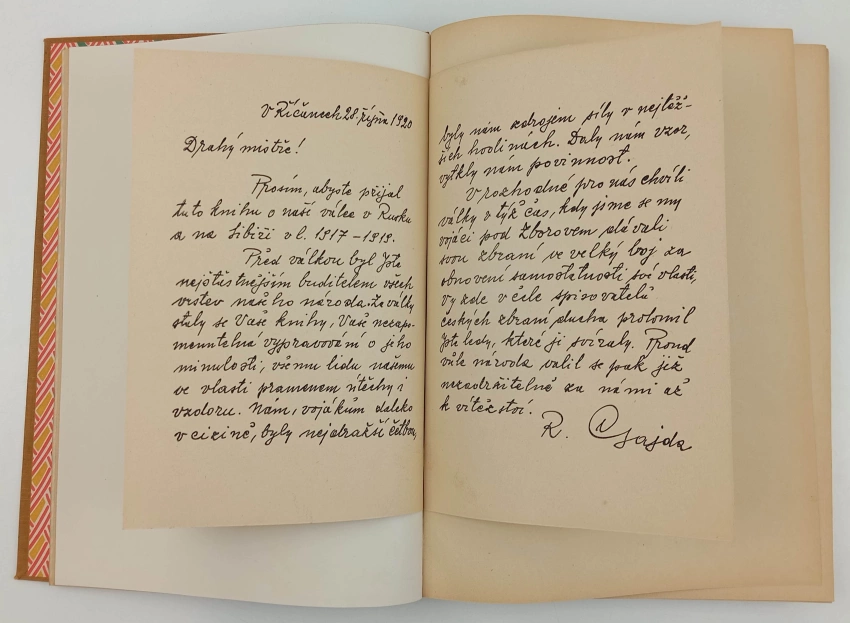 V Říčanech 28. října 1920
Drahý mistře!
Prosím, abyste přijal
tuto knihu o naší válce v Rusku
a na Sibiři v l. 1917–1919.
Před válkou byl jste
nejšťastnějším buditelem všech
vrstev našeho národa. Za války
staly se Vaše knihy, Vaše nezapo-
menutelné vypravování o jeho
minulosti, všemu lidu našemu
ve vlasti pramenem útěchy i
vzdoru. Nám, vojákům daleko
v cizině, byly nejdražší četbou,
byly nám zdrojem síly v nejtěž-
ších hodinách. Daly nám vzor,
vytkly nám povinnost.
V rozhodné pro nás chvíli
války v týž čas, kdy jsme se my
vojáci pod Zborovem dávali
svou zbraní ve velký boj za
obnovení samostatnosti své vlasti,
Vy zde v čele spisovatelů
českých zbraní ducha prolomil
jste ledy, které ji svíraly. Proud
vůle národa valil se pak již
nezadržitelně za námi až
k vítězství.
R. Gajda